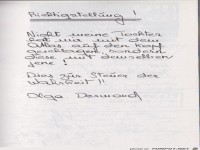 Richtigstellung !
Nicht meine Tochter
hat mir mit dem
Atlas auf den Kopf
geschlagen, sondern
diese mit demselben
jene !
Dies zur Steuer der
Wahrheit !!
Olga Desmond